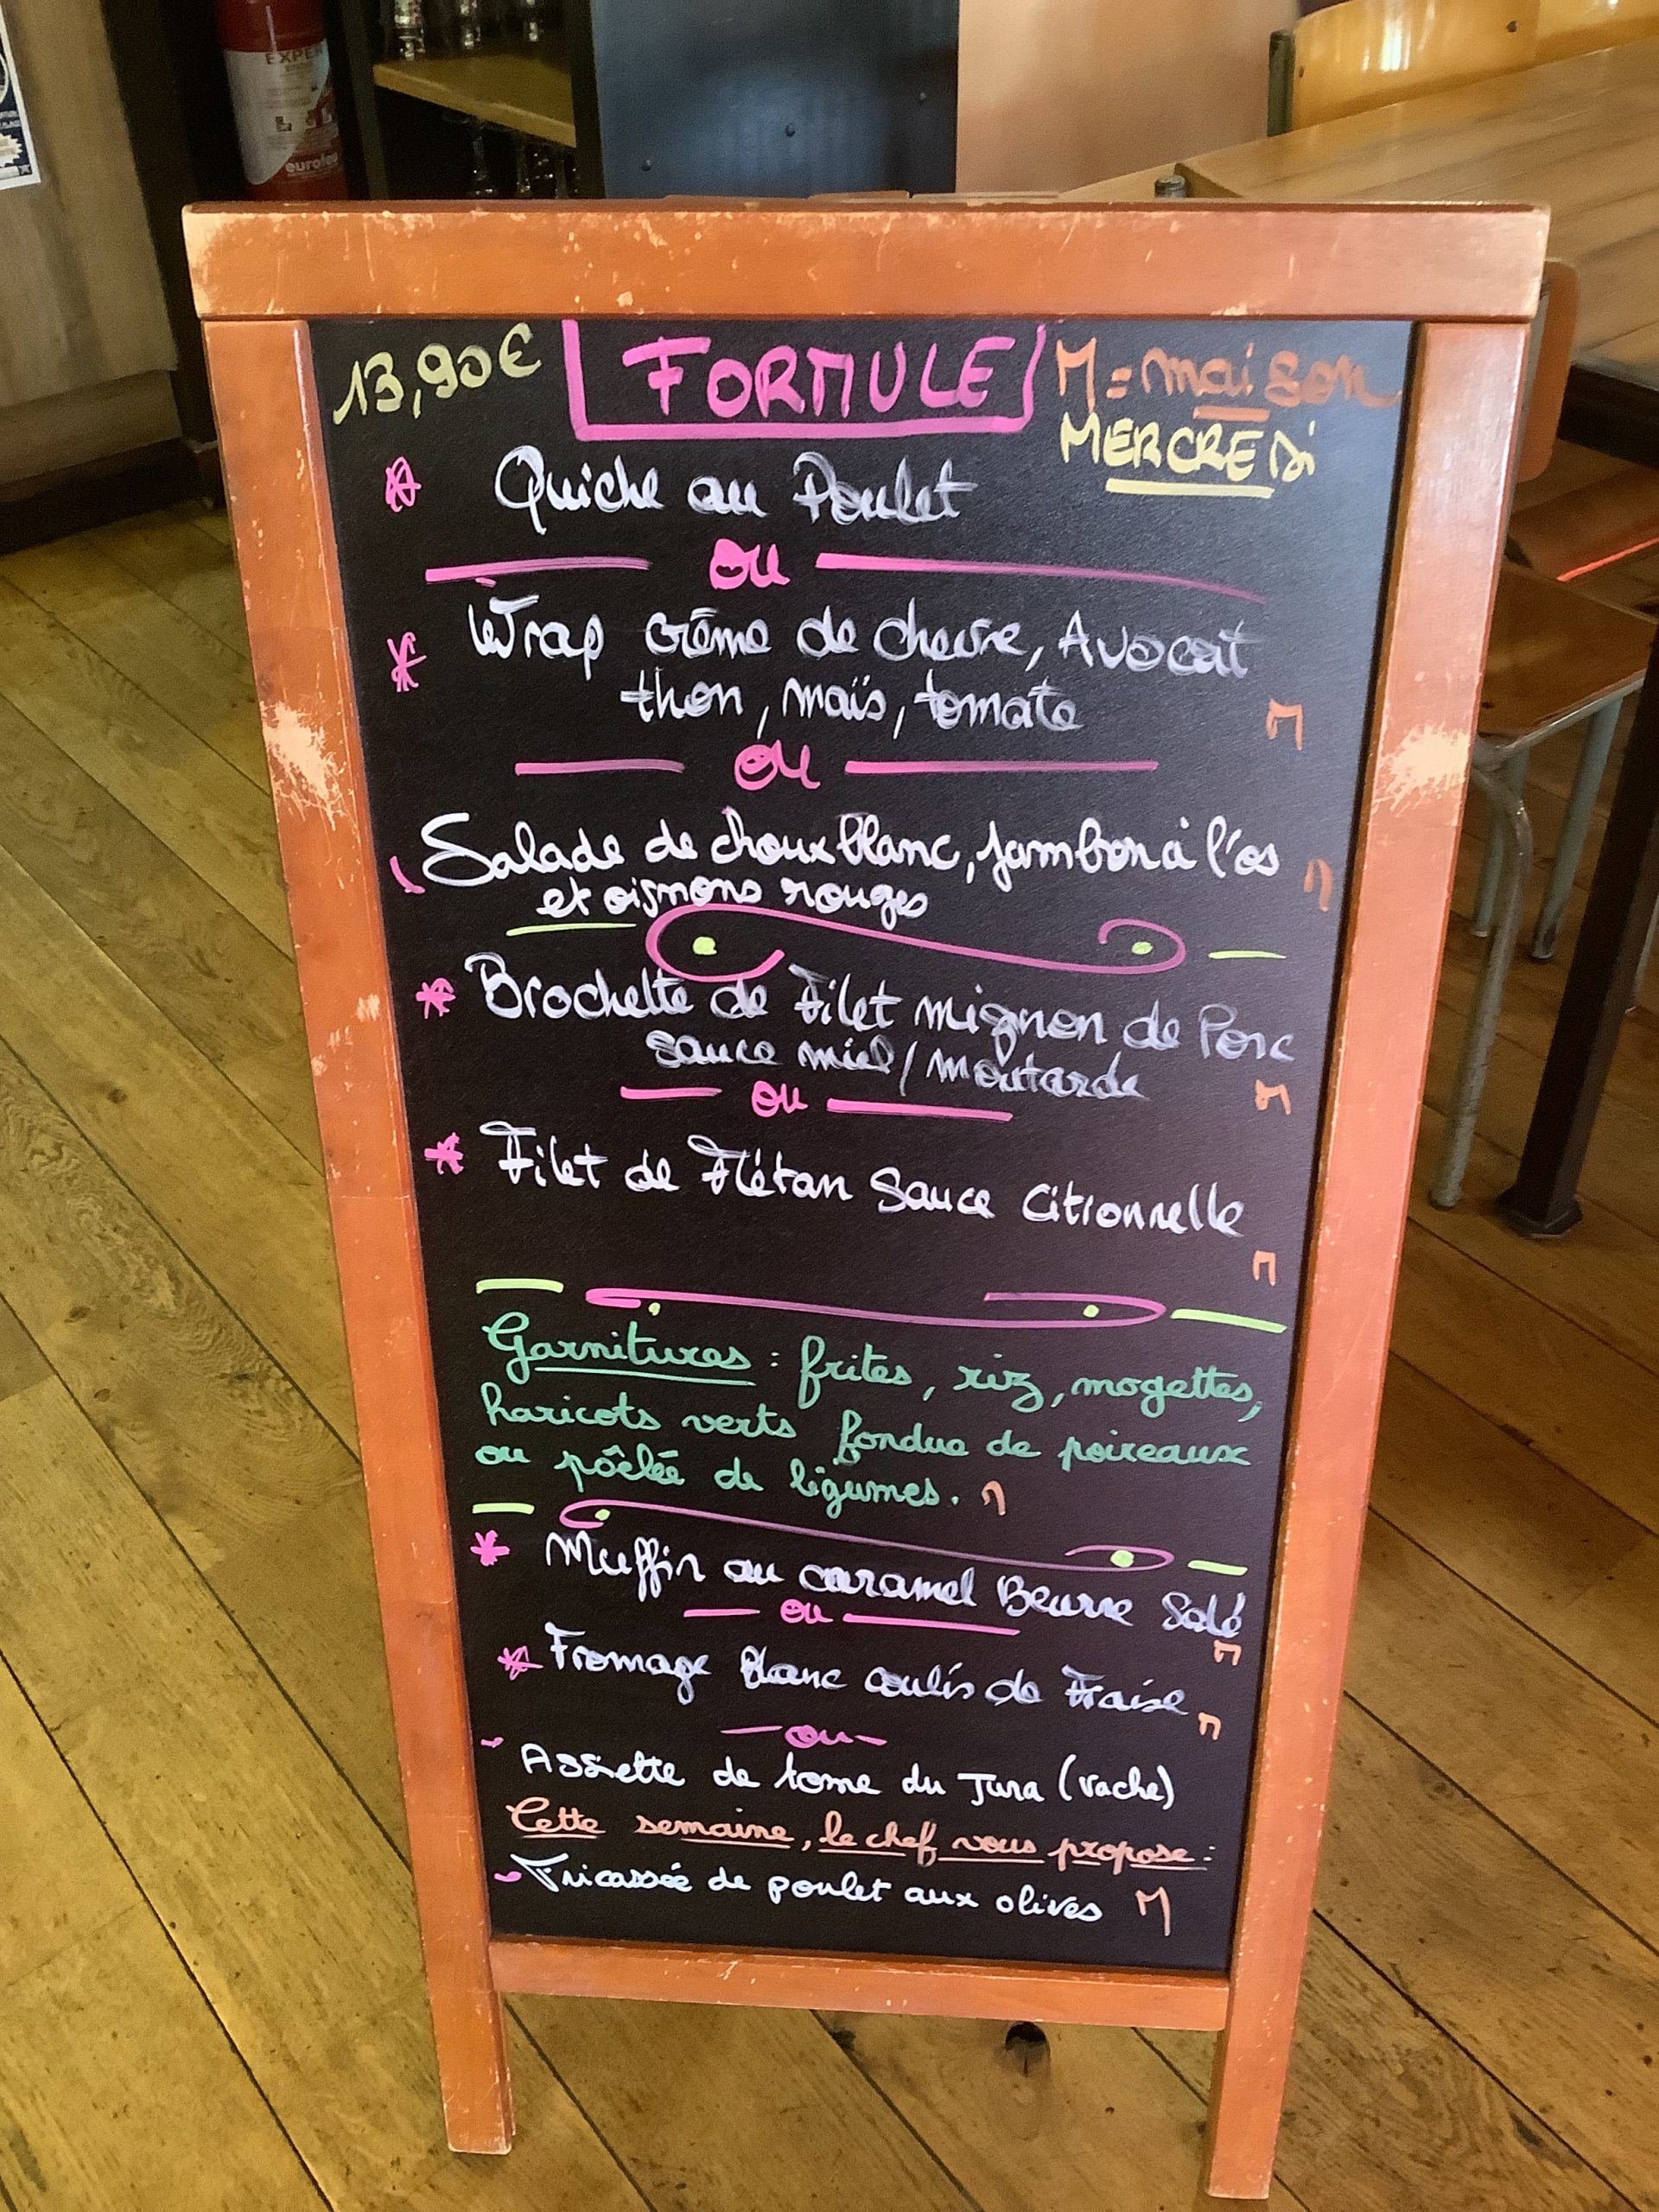 EXPER
eurofeu
13,90€ FORMULE M = maison
MERCREDi
Quiche au Poulet
ou
Wrap crème de chèvre, Avocat
thon, maïs, tomate M
ou
Salade de choux blanc, jambon à l'os M
et oignons rouges
Brochette de Filet mignon de Porc
sauce miel/moutarde M
ou
Filet de Flétan Sauce Citronnelle
M
Garnitures : frites, riz, mogettes,
haricots verts fondue de poireaux
ou pôêlée de légumes. M
Muffin au caramel Beurre Salé
ou M
Fromage blanc coulis de Fraise M
ou
Assiette de tome du Jura (vache)
Cette semaine, le chef vous propose :
Fricassée de poulet aux olives M